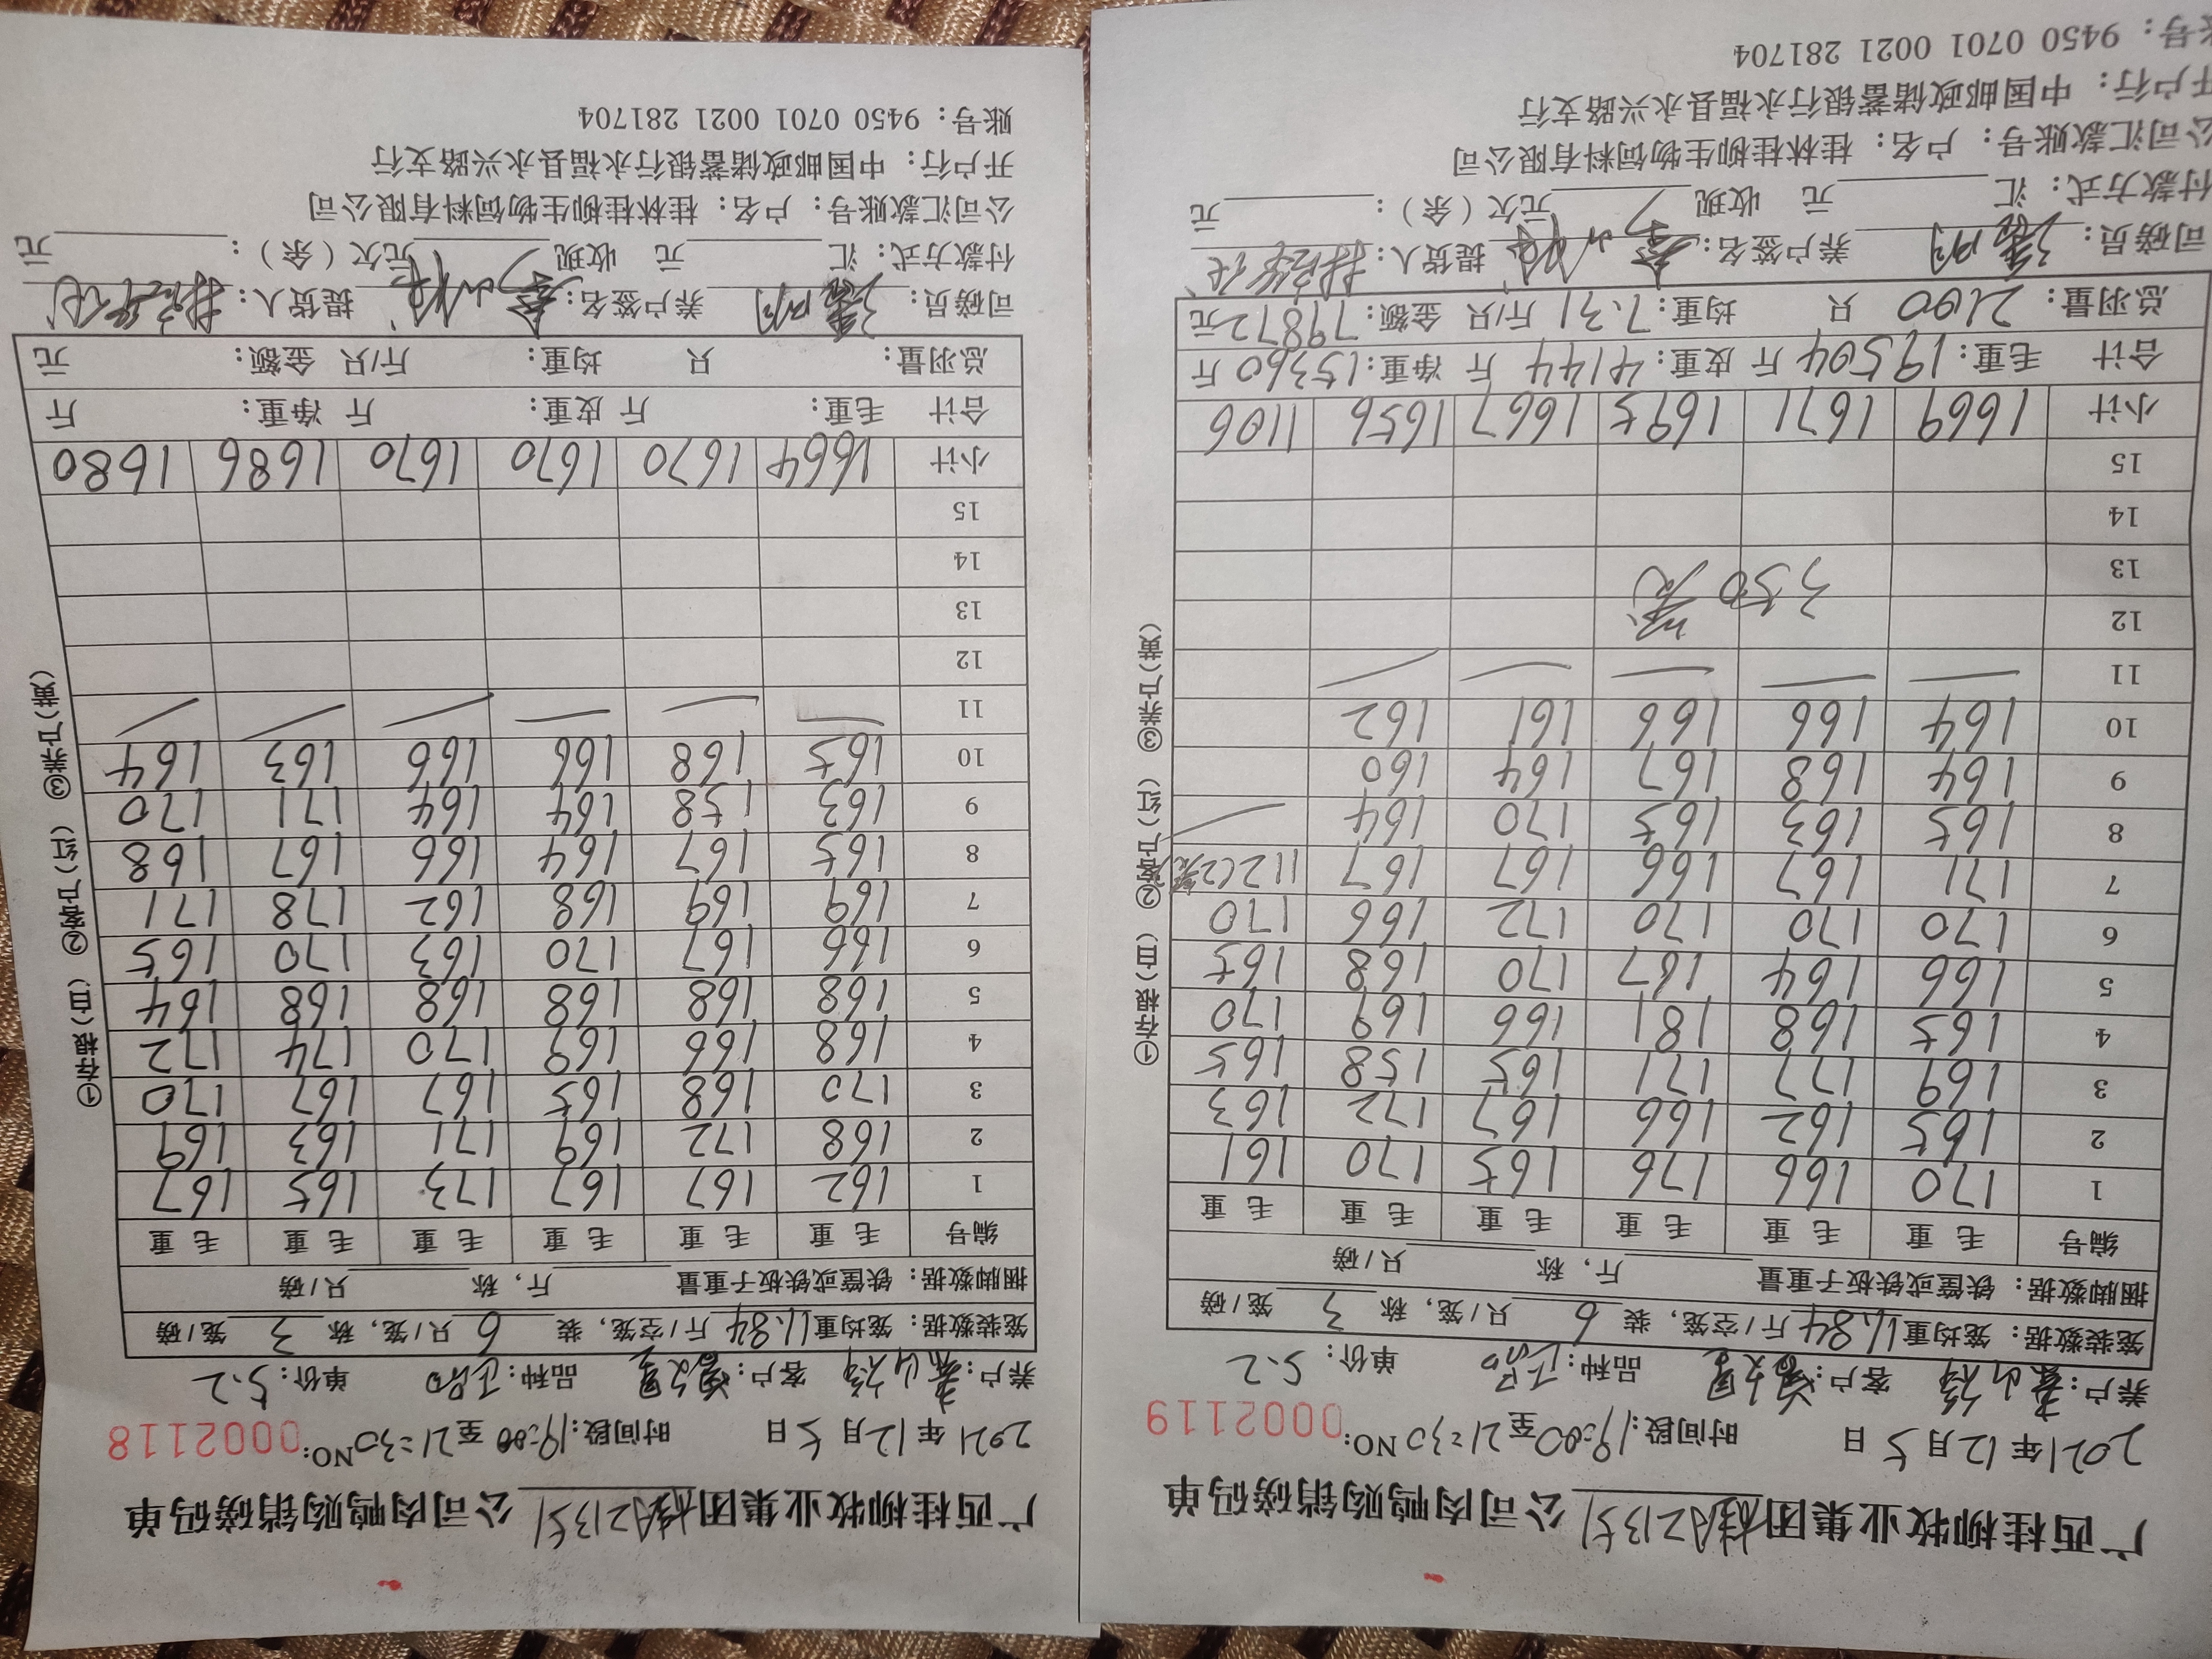 广西桂柳牧业集团 公司肉鸭购销磅码单
2021年12月5日 时间段:19:00至21:30 NO:0002119
养户: 客户: 品种: 单价:5.2
笼装数据:笼均重11.84斤/空笼,装6只/笼,称3笼/磅
捆脚数据:铁筐或铁板子重量 斤,称 只/磅
编号 毛重 毛重 毛重 毛重 毛重 毛重
1 170 166 176 165 170 161
2 165 162 166 167 172 163
3 169 177 171 165 158 165
4 165 168 181 166 169 170
5 166 164 167 170 168 165
6 170 170 170 172 166 170
7 171 167 166 167 167 112(2笼)
8 165 163 165 170 164
9 164 168 167 164 160
10 164 166 166 161 162
11
12
13 350笼
14
15
小计 1669 1671 1695 1667 1656 1106
合计 毛重:19504斤 皮重:4144斤 净重:15360斤
总羽量:2100只 均重:7.31斤/只 金额:79872元
司磅员: 养户签名: 提货人:
付款方式:汇 元 收现 元欠(余): 元
公司汇款账号:户名:桂林桂柳生物饲料有限公司
开户行:中国邮政储蓄银行永福县永兴路支行
账号:9450 0701 0021 281704
①存根(白) ②客户(红) ③养户(黄)
广西桂柳牧业集团 公司肉鸭购销磅码单
2021年12月5日 时间段:19:00至21:30 NO:0002118
养户: 客户: 品种: 单价:5.2
笼装数据:笼均重11.84斤/空笼,装6只/笼,称3笼/磅
捆脚数据:铁筐或铁板子重量 斤,称 只/磅
编号 毛重 毛重 毛重 毛重 毛重 毛重
1 162 167 167 173 165 167
2 168 172 169 171 163 169
3 170 168 165 167 167 170
4 168 166 169 170 174 172
5 168 168 168 168 168 164
6 166 167 170 163 170 165
7 169 169 168 162 178 171
8 165 167 164 166 167 168
9 163 158 164 164 171 170
10 165 168 166 166 163 164
11
12
13
14
15
小计 1664 1670 1670 1670 1686 1680
合计 毛重: 斤 皮重: 斤 净重: 斤
总羽量: 只 均重: 斤/只 金额: 元
司磅员: 养户签名: 提货人:
付款方式:汇 元 收现 元欠(余): 元
公司汇款账号:户名:桂林桂柳生物饲料有限公司
开户行:中国邮政储蓄银行永福县永兴路支行
账号:9450 0701 0021 281704
①存根(白) ②客户(红) ③养户(黄)